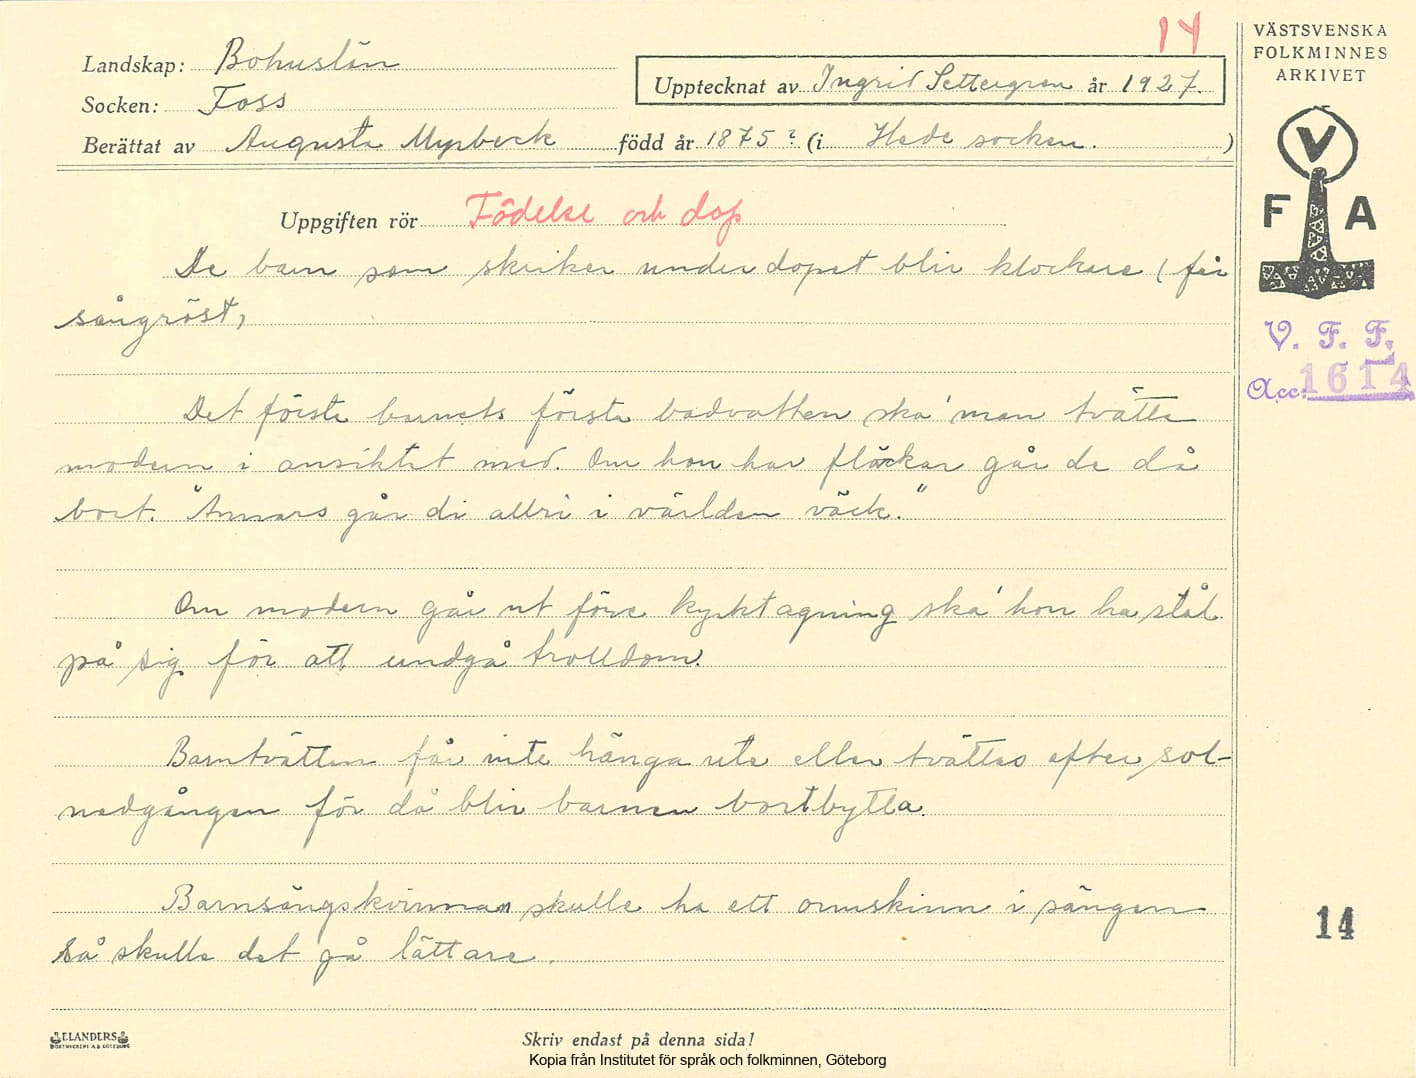 14
VÄSTSVENSKA
FOLKMINNES
ARKIVET
Landskap: Bohuslän
Upptecknat av Ingrid Settergren år 1927.
Socken: Foss
Berättat av Augusta Myrbeck född år 1875? (i Hede socken. )
V
F A
Uppgiften rör Födelse och dop
De barn som skriker under dopet blir klockare (får
sångröst,
V. F. F.
Acc. 1614
Det första barnets första badvatten ska' man tvätta
modern i ansiktet med. Om hon har fläckar går de då
bort. "Annars går di allri i världen väck."
Om modern går ut före kyrktagning ska' hon ha stål
på sig för att undgå trolldom.
Barntvätten får inte hänga ute eller tvättas efter sol-
nedgången för då blir barnen bortbytta.
Barnsängskvinnan skulle ha ett ormskinn i sängen
så skulle det gå lättare.
14
ELANDERS
BOKTRYCKERI A.B. GÖTEBORG
Skriv endast på denna sida!
Kopia från Institutet för språk och folkminnen, Göteborg